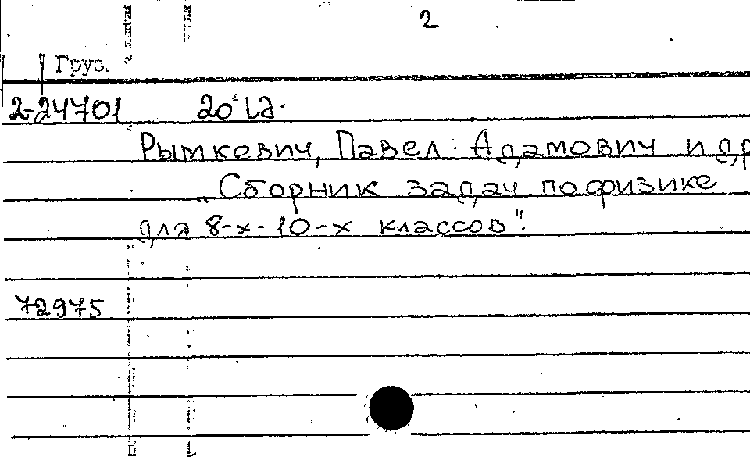 2
Груз.
2-24701 20
Рымкевич, Павел Адамович и др
„Сборник задач по физике
для 8-х-10-х классов".
72975